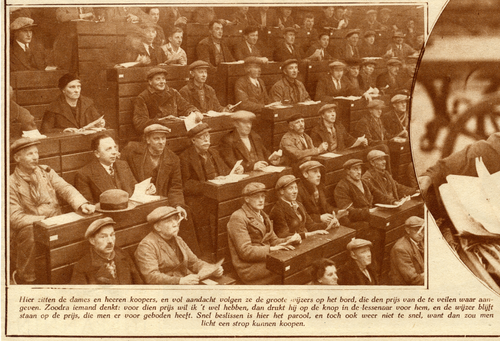 Hier zitten de dames en heeren koopers, en vol aandacht volgen ze de groote wijzers op het bord, die den prijs van de te veilen waar aan-
geven. Zoodra iemand denkt: voor dien prijs wil ik 't wel hebben, dan drukt hij op de knop in de lessenaar voor hem, en de wijzer blijft
staan op de prijs, die men er voor geboden heeft. Snel beslissen is hier het parool, en toch ook weer niet te snel, want dan zou men
licht een strop kunnen koopen.